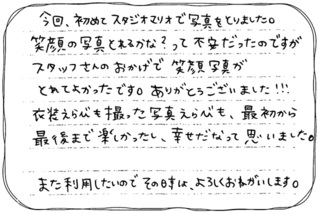 今回、初めてスタジオマリオで写真をとりました。
笑顔の写真とれるかな?って不安だったのですが
スタッフさんのおかげで笑顔写真が
とれてよかったです。ありがとうございました!!!
衣装えらびも撮った写真えらびも、最初から
最後まで楽しかったし、幸せだなって思いました。
また利用したいのでその時は、よろしくおねがいします。